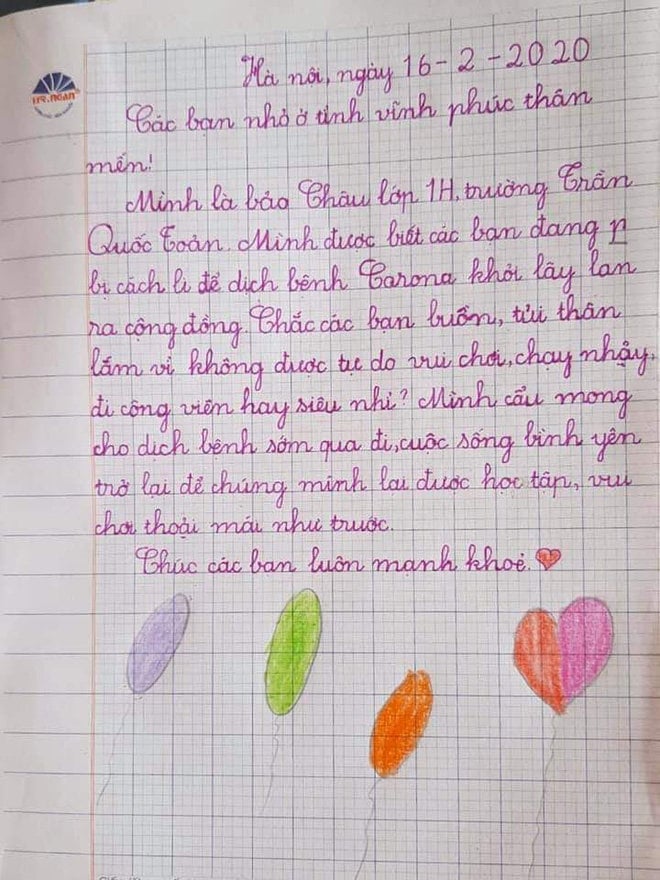 HR.NGAN®
Hà nôi, ngày 16-2-2020
Các bạn nhỏ ở tỉnh vĩnh phúc thân
mến!
Mình là bảo Châu lớp 1H, trường Trần
Quốc Toản. Mình được biết các bạn đang n
bị cách li để dịch bệnh Carona khỏi lây lan
ra cộng đồng. Chắc các bạn buồn, tủi thân
lắm vì không được tự do vui chơi, chạy nhảy,
đi công viên hay siêu nhi? Mình cầu mong
cho dịch bệnh sớm qua đi, cuộc sống bình yên
trở lại để chúng mình lai được học tập, vui
chơi thoải mái như trước.
Chúc các bạn luôn mạnh khoẻ.